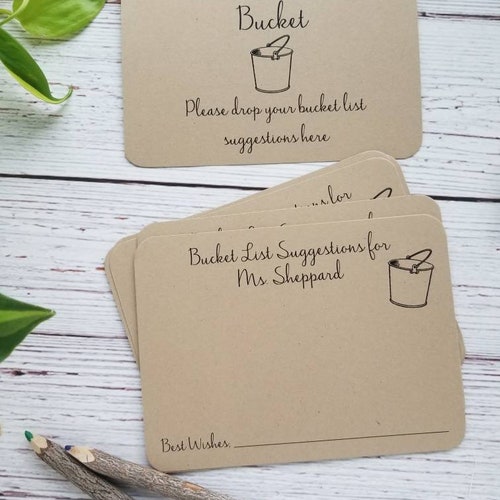 Bucket
Please drop your bucket list
suggestions here
for
Bucket List Suggestions for
Ms. Sheppard
Best Wishes,